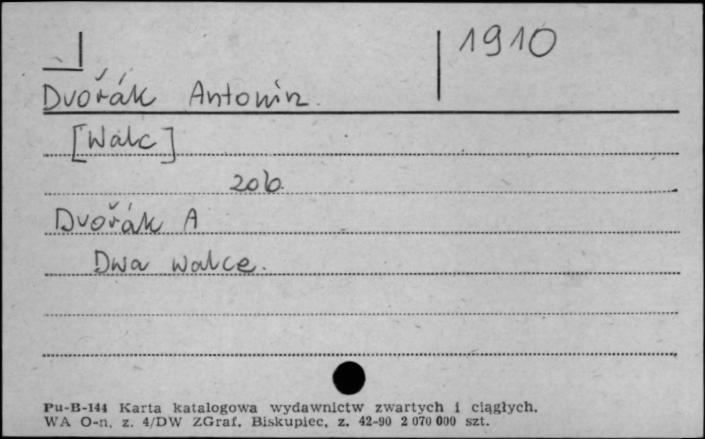 1910
Dvořák Antonin.
[Walc]
zob.
Dvořák A
Dwa walce.
Pu-B-144 Karta katalogowa wydawnictw zwartych i ciągłych.
WA O-n, z. 4/DW ZGraf. Biskupiec, z. 42-90 2 070 000 szt.